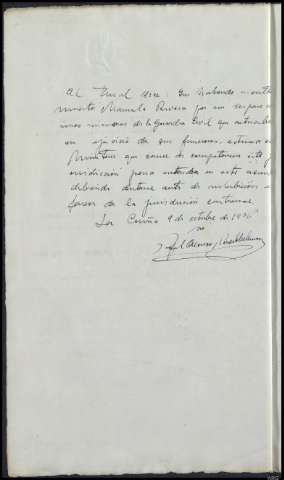 Al Fiscal dice: Que habiendo resultado
muerto Manuela Rivera por un disparo de
unos números de la Guardia Civil que actuaban
en ejercicio de sus funciones, estima el
Ministerio que carece de competencia esta ju
risdicción para entender en este asunto
debiendo dictarse auto de inhibición a
favor de la jurisdicción castrense.
La Coruña 9 de octubre de 1936